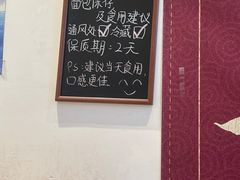 面包保存
及食用建议
通风处✓冷藏✓
保质期：2天
Ps：建议当天食用，
口感更佳